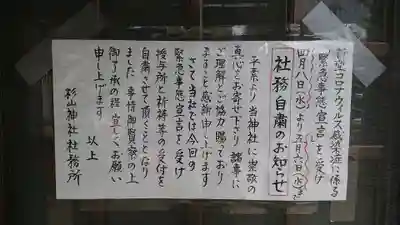 新型コロナウィルス感染症に係る
緊急事態宣言を受け
四月八日(水)より五月六日(水)まで
社務自粛のお知らせ
平素より当神社に崇敬の
真心をお寄せ下さり 諸事に
ご理解とご協力賜っており
ますこと感謝申し上げます
さて当社では今回の
緊急事態宣言を受け
授与所と祈祷等の受付を
自粛させて頂くこととなり
ました 事情御賢察の上
御了承の程宜しくお願い
申し上げます
以上
杉山神社社務所